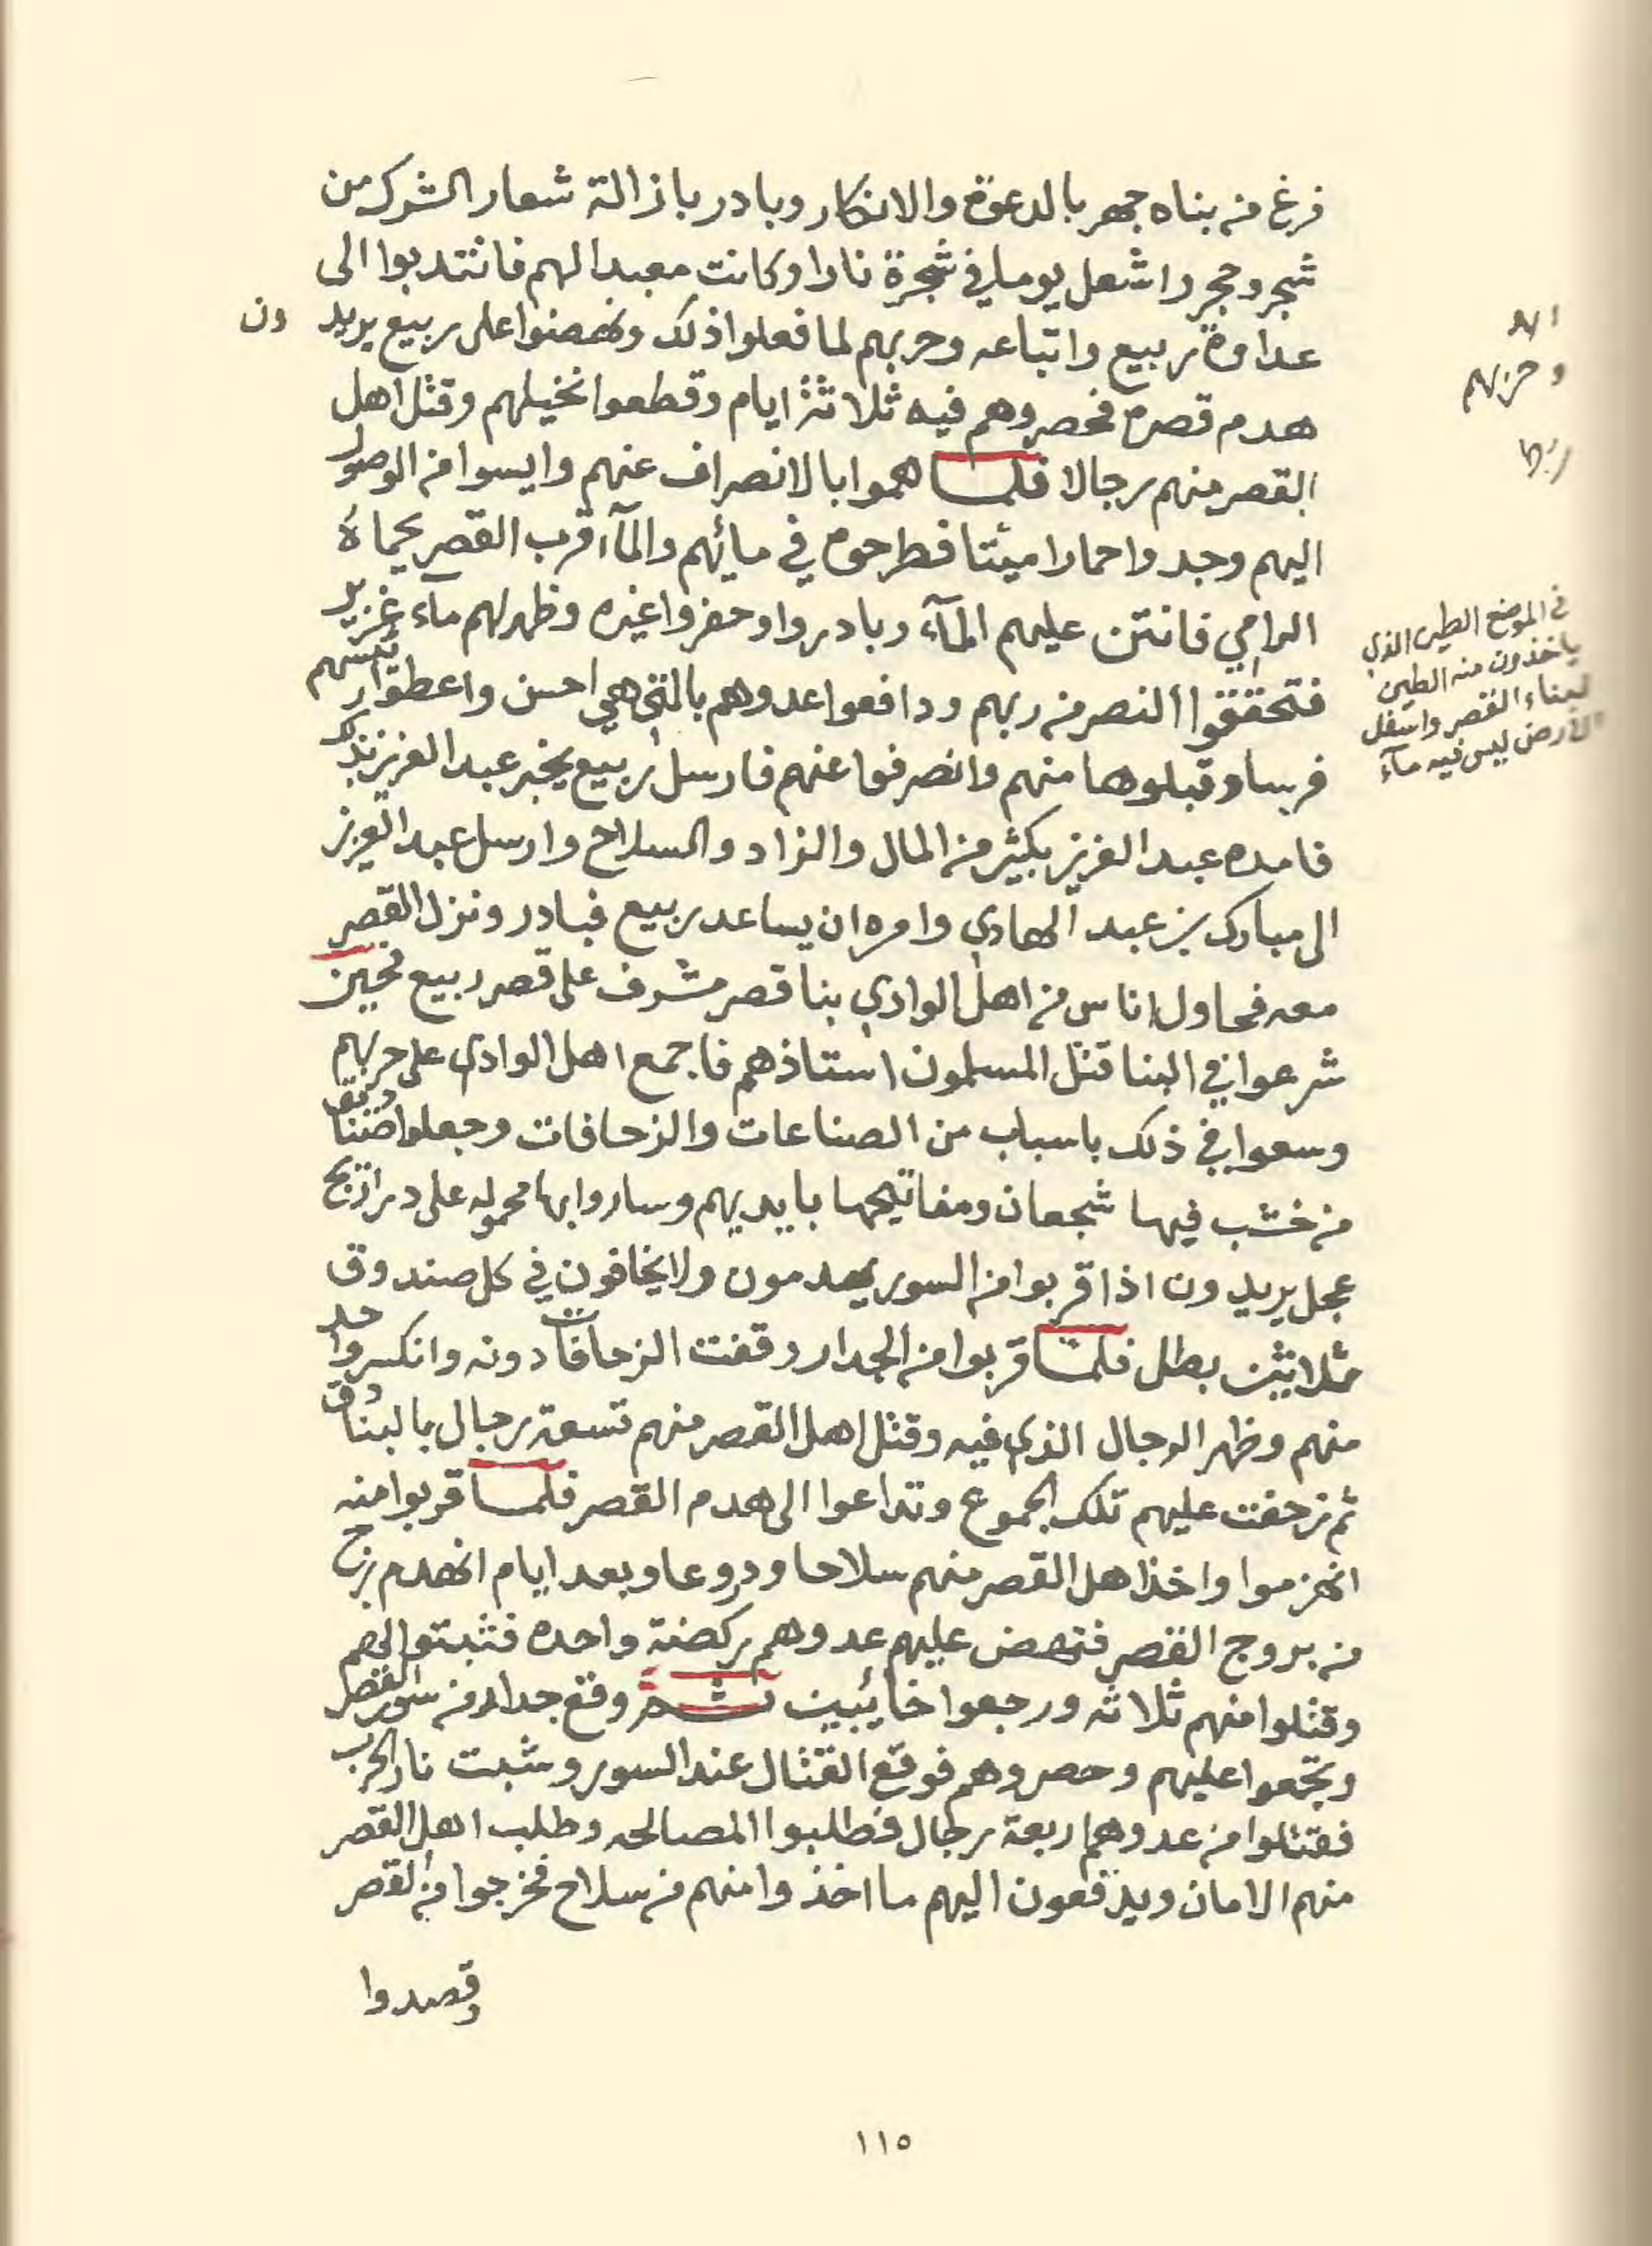 فرغ من بناه جهر بالدعوة والانكار وبادر بازالة شعار الشرك من
شجر وحجر واشعل يوما في شجرة نارا وكانت معبدا لهم فانتدبوا الى
عداوة ربيع واتباعه وحربهم لما فعلوا ذلك ونهضوا على ربيع يريد ون
هدم قصره فحصروهم فيه ثلاثة ايام وقطعوا نخيلهم وقتل اهل
القصر منهم رجالا فلما هموا بالانصراف عنهم وايسوا من الوصول
اليهم وجدوا حمارا ميتا فطرحوه في مائهم والمآء قرب القصر بحماة
الرامي فانتن عليهم المآء وبادروا وحفروا غيره وظهر لهم مآء غزير
فتحققوا النصر من ربهم ودافعوا عدوهم بالتي هي احسن واعطوا رئيسهم
فرسا وقبلوها منهم وانصرفوا عنهم فارسل ربيع يخبر عبد العزيز بذلك
فامده عبد العزيز بكثير من المال والزاد والسلاح وارسل عبد العزيز
الى مبارك بن عبد الهادي وامره ان يساعد ربيع فبادر ونزل القصر
معه فحاول اناس من اهل الوادي بنا قصر مشرف على قصر ربيع فحين
شرعوا في البنا قتل المسلمون استاذهم فاجمع اهل الوادي على حربهم
وسعوا في ذلك باسباب من الصناعات والزحافات وجعلوا صناديق
من خشب فيها شجعان ومفاتيحها بايديهم وساروا بها محموله على دراريج
عجل يريدون اذا قربوا من السور يهدمون ولا يخافون في كل صندوق
ثلاثين بطل فلما قربوا من الجدار وقفت الزحافات دونه وانكسر واحد
منهم وظهر الرجال الذي فيه وقتل اهل القصر منهم تسعة رجال بالبنادق
ثم زحفت عليهم تلك الجموع وتداعوا الى هدم القصر فلما قربوا منه
انهزموا واخذ اهل القصر منهم سلاحا ودروعا وبعد ايام انهدم برج
من بروج القصر فنهض عليهم عدوهم ركضة واحده فثبتوا لهم
وقتلوا منهم ثلاثه ورجعوا خائبين ثم وقع جدار من سور القصر
وتجمعوا عليهم وحصروهم فوقع القتال عند السور وشبت نار الحرب
فقتلوا من عدوهم اربعة رجال فطلبوا المصالحه وطلب اهل القصر
منهم الامان ويدفعون اليهم ما اخذوا منهم من سلاح فخرجوا من القصر
وقصدوا
وحربهم
في الموضع الطين الذي
ياخذون منه الطين
لبناء القصر واسفل
الارض ليس فيه مآء
١١٥